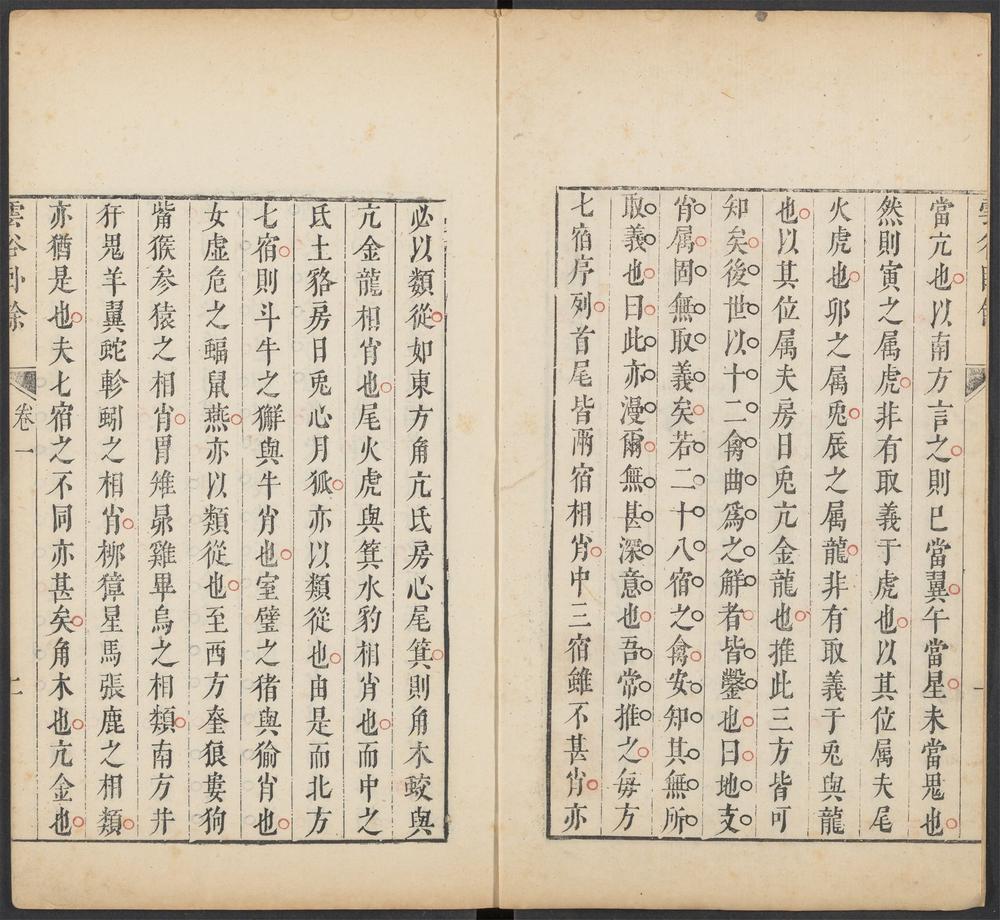 當亢也以南方言之則巳當翼午當星未當鬼也
然則寅之属虎非有取義于虎也以其位属夫尾
火虎也卯之属兎辰之属龍非有取義于兎與龍
也以其位属夫房日兎亢金龍也推此三方皆可
知矣後世以十二禽曲爲之觧者皆鑿也曰地支
肖属固無取義矣若二十八宿之禽安知其無所
取義也曰此亦漫爾無甚深意也吾常推之毎方
七宿序列首尾皆兩宿相肖中三宿雖不甚肖亦
必以類從如東方角亢氐房心尾箕則角木蛟與
亢金龍相肖也尾火虎與箕水豹相肖也而中之
氐土貉房日兎心月狐亦以類從也由是而北方
七宿則斗牛之獬與牛肖也室璧之猪與㺄肖也
女虛危之蝠鼠燕亦以類從也至西方奎狼婁狗
觜猴参猿之相肖胃雉昴雞畢烏之相類南方井
犴鬼羊翼蛇軫蚓之相肖栁獐星馬張鹿之相類
亦猶是也夫七宿之不同亦甚矣角木也亢金也
雲谷卧餘
卷一
二